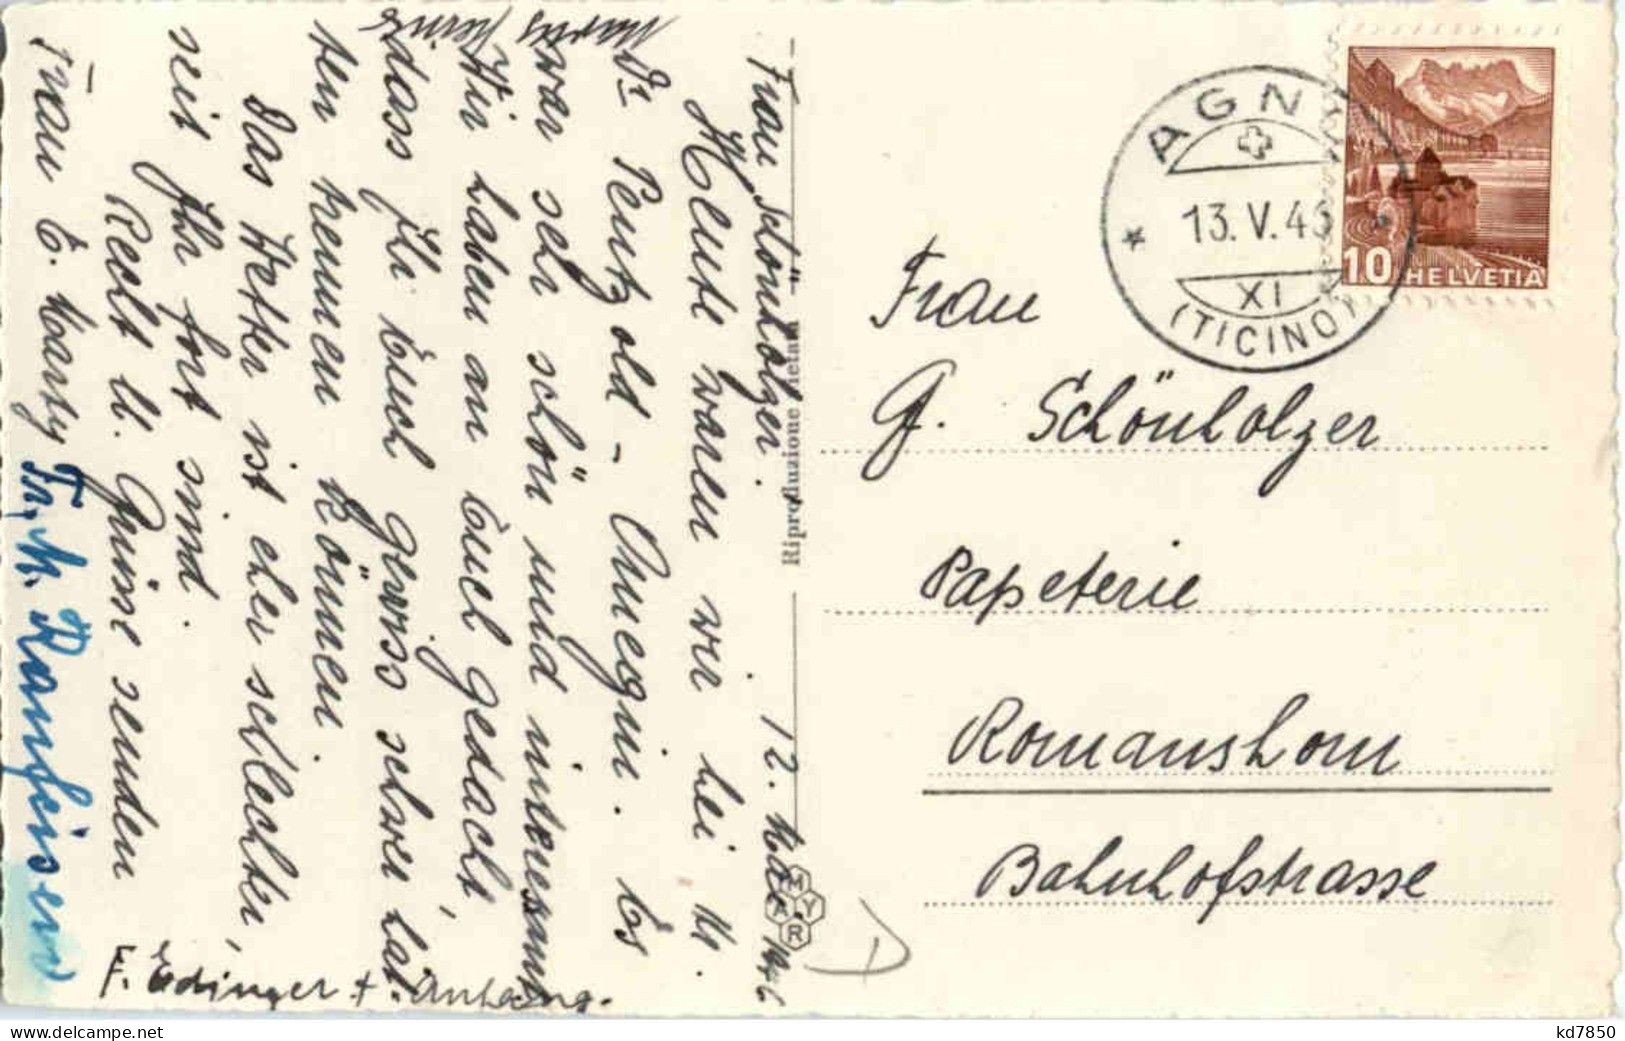 Frau Schönholzer. 12. Mai. 1946
Heute waren wir bei M.
Dr Penzold - Omegin. Es
war sehr schön und interessant
Wir haben an Euch gedacht,
dass Ihr Euch gewiss schwer hat
ten trennen können.
Das Wetter ist eher schlechter,
seit Ihr fort sind.
Recht h. Grüsse senden
Frau E. Marty Fr. M. Ranfeisen
F. Edinger + Anhang.
Riproduzione vietata
MYRA
AGNO
13. V. 46
XI
(TICINO)
10 HELVETIA
Frau
G. Schönholzer
Papeterie
Romanshorn
Bahnhofstrasse
www.delcampe.net
kd7850